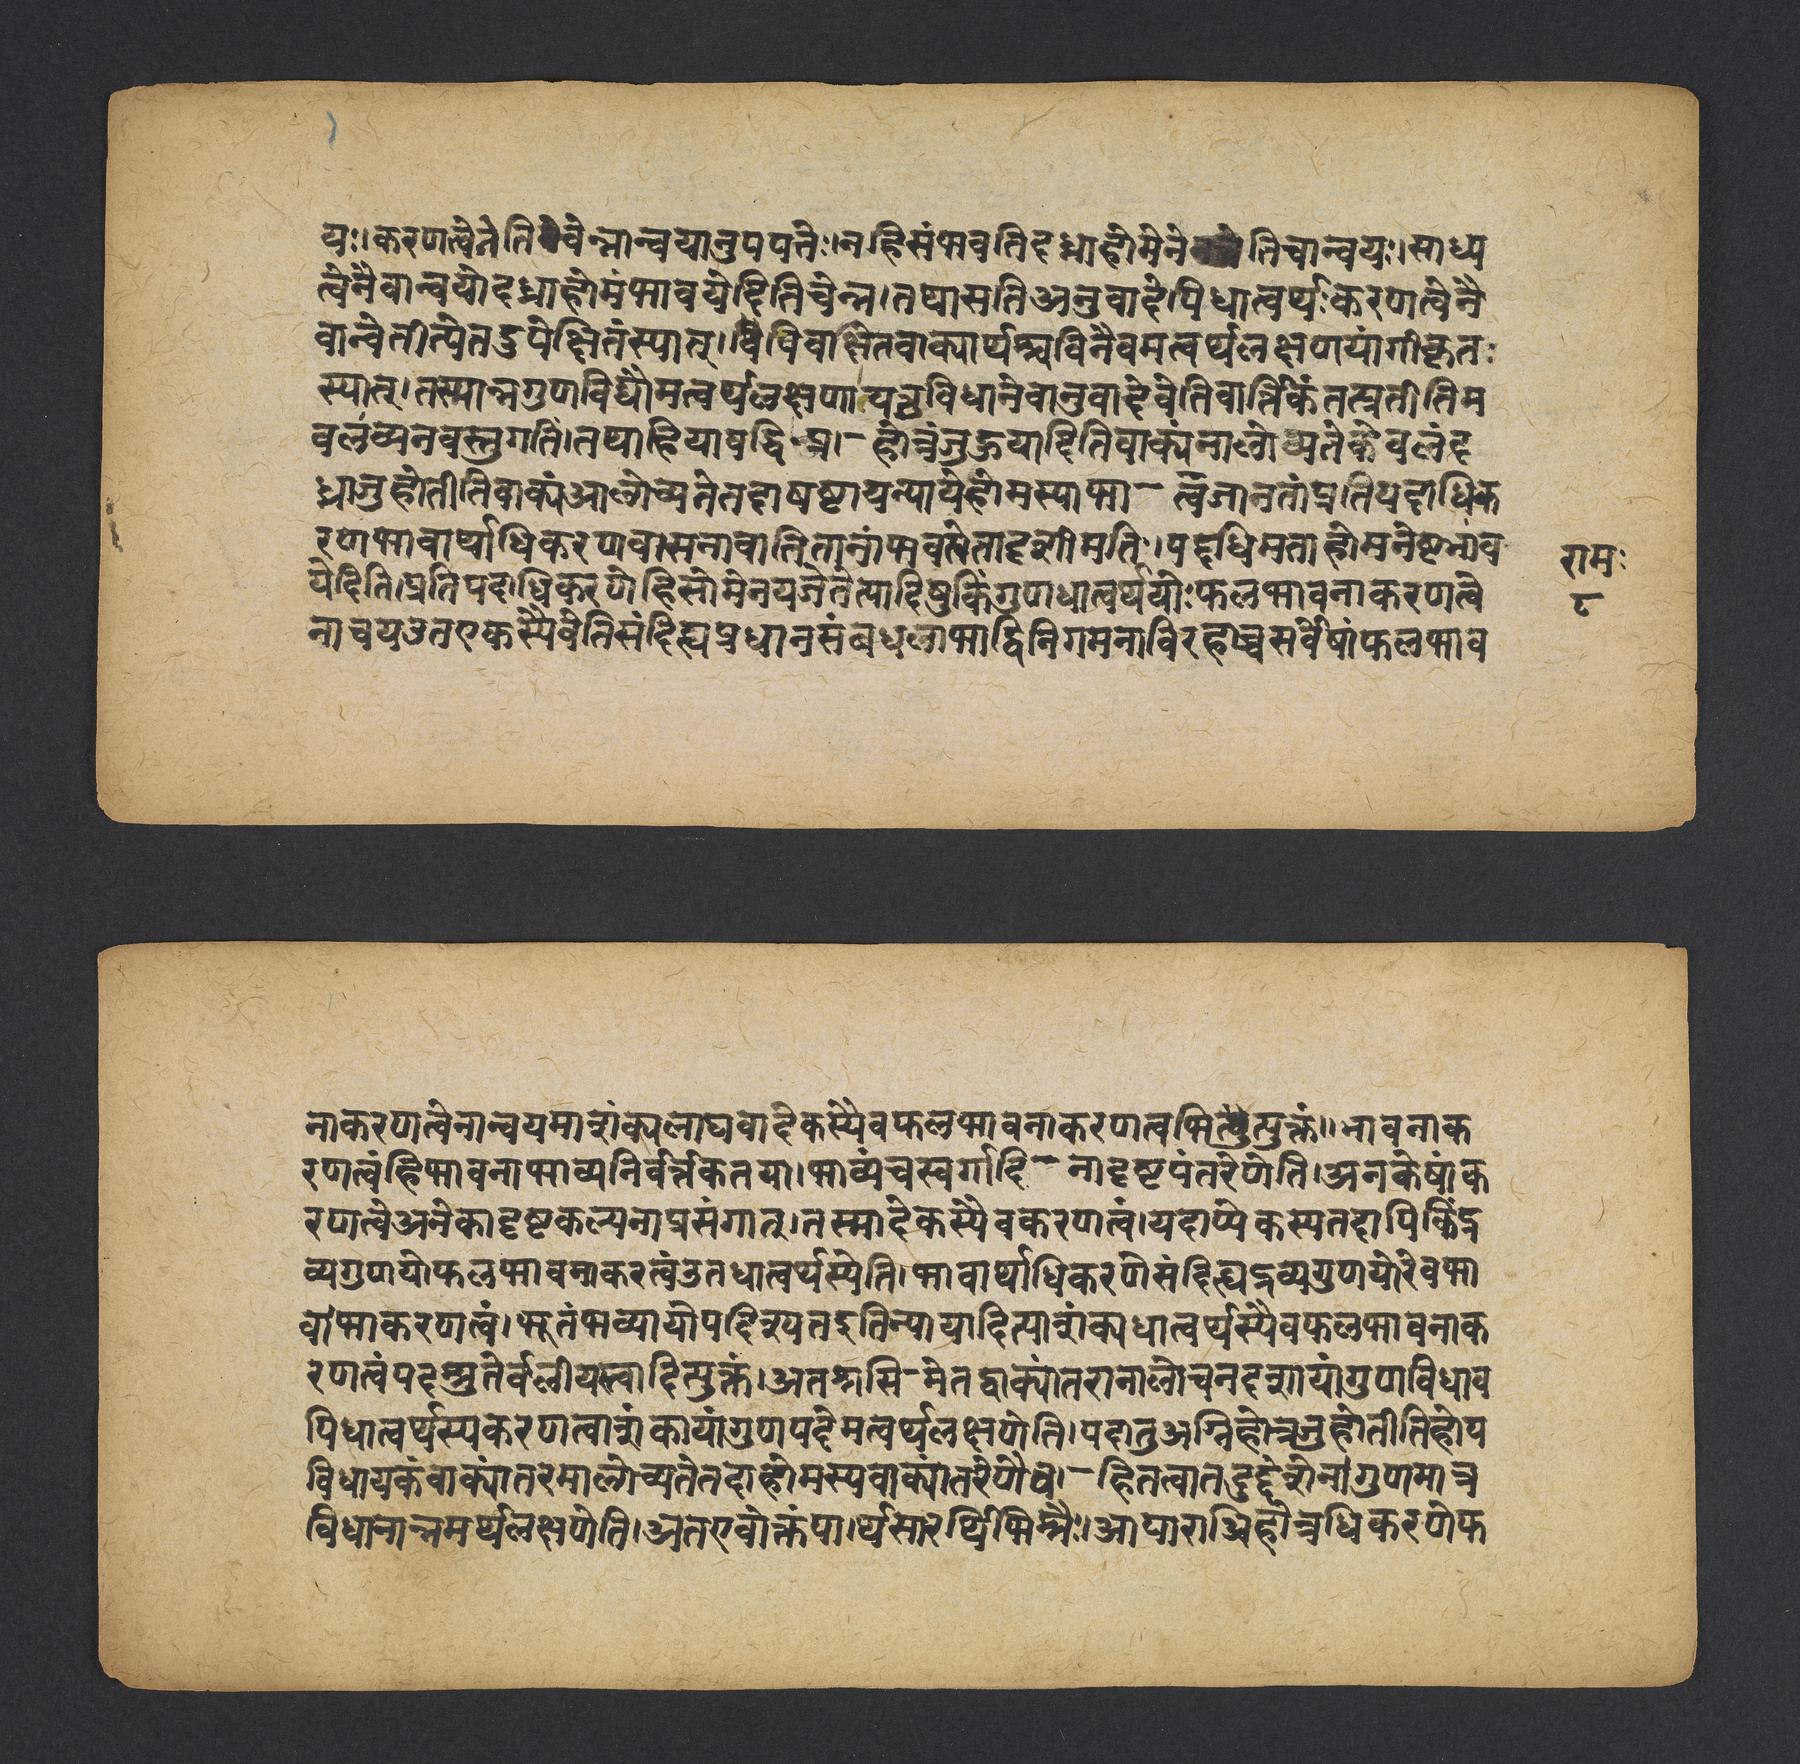 यः।करणत्वेनेतिचेन्नान्वयानुपपत्तेः।नहिसंभवतिदध्नाहोमेनेतिचान्वयः।साध्य
त्वेनैवान्वयोदध्नाहोमंभावयेदितिचेन्न।तथासतिअनुवादेपिधात्वर्थःकरणत्वेनै
वान्वेतीत्येतदुपेक्षितंस्यात्।विवक्षितवाक्यार्थश्चविनैवमत्वर्थलक्षणयांगीकृतः
स्यात्।तस्मान्नगुणविधौमत्वर्थलक्षणात्यच्चविधानेवानुवादेवेतिवार्तिकंतत्प्रतीतिम
वलंव्यनवस्तुगतिं।तथाहियावद्धि होत्रंजुहुयादितिवाक्यंनालोच्यतेकेवलंद
ध्नाजुहोतीतिवाक्यंआलोच्यतेतदाषष्टाद्यन्यायेहोमस्याभा त्वंजानतांप्रतिपदाधिक
रणभावार्थाधिकरणवासनावातितानांभवत्येतादृशीमतिः।यद्दधिमताहोमनेष्टभाव
येदिति।प्रतिपदाधिकरणेहिसोमेनयजेतेत्यादिषुकिंगुणधात्वर्थयोःफलभावनाकरणत्वे
नाचयउतएकस्यैवेतिसंदिह्यप्रधानसंबधलाभाद्विनिगमनाविरहाच्चसर्वेषांफलभाव
रामः
८
नाकरणत्वेनान्वयमाशंक्यलाघवादेकस्यैवफलभावनाकरणत्वमित्युक्तं॥भावनाक
रणत्वंहिभावनाभाव्यनिर्वर्त्तकतया।भाव्यंचस्वर्गादि नादृष्टपंतरेणेति।अनकेषांक
रणत्वेअनेकादृष्टकल्पनाप्रसंगात्।तस्मादेकस्यैवकरणत्वं।यदाप्येकस्यतदापिकिंद्र
व्यगुणयोफलभावनाकरत्वंउतधात्वर्थस्येति।भावार्थाधिकरणेसंदिह्यद्रव्यगुणयोरेवभा
वोभाकरणत्वं।भूतंभव्यायोपदिश्यतइतिन्यायादित्याशंक्यधात्वर्थस्यैवफलभावनाक
रणत्वंपदश्रुतेर्बलीयस्त्वादित्युक्तं।अतश्चासि मेतद्वाक्यांतरानालोचनदशायांगुणविधाव
पिधात्वर्थस्यकरणत्वाशंकायांगुणपदेमत्वर्थलक्षणेति।यदातुअग्निहोत्रजुहोतीतिहोप
विधायकंवाक्यांतरमालोच्यतेतदाहोमस्यवाक्यांतरेणैव। हितत्वातदुद्देशेनगुणमात्र
विधानान्नमर्थलक्षणेति।अतएवोक्तंपा।र्थसारथिमिश्रैः।आघाराग्निहोत्रधिकरणेफ